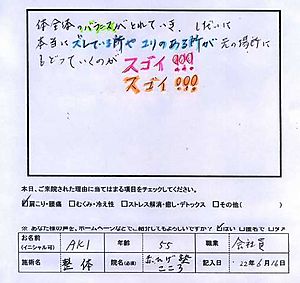 体全体のバランスがとれていき、しだいに
本当にズレている所やユリのある所が元の場所に
もどっていくのが スゴイ !!!
スゴイ !!!
本日、ご来院された理由に当てはまる項目をチェックしてください。
☑肩こり・腰痛 □むくみ・冷え性 □ストレス解消・癒し・デトックス □その他( )
※ あなた様の声を、ホームページなどでご紹介してもよろしいですか？ ☑はい □匿名で
お名前 (イニシャル可) AKI 年齢 55 職業 会社員
施術名 整体 院名(必須) こころ 記入日 22年6月16日